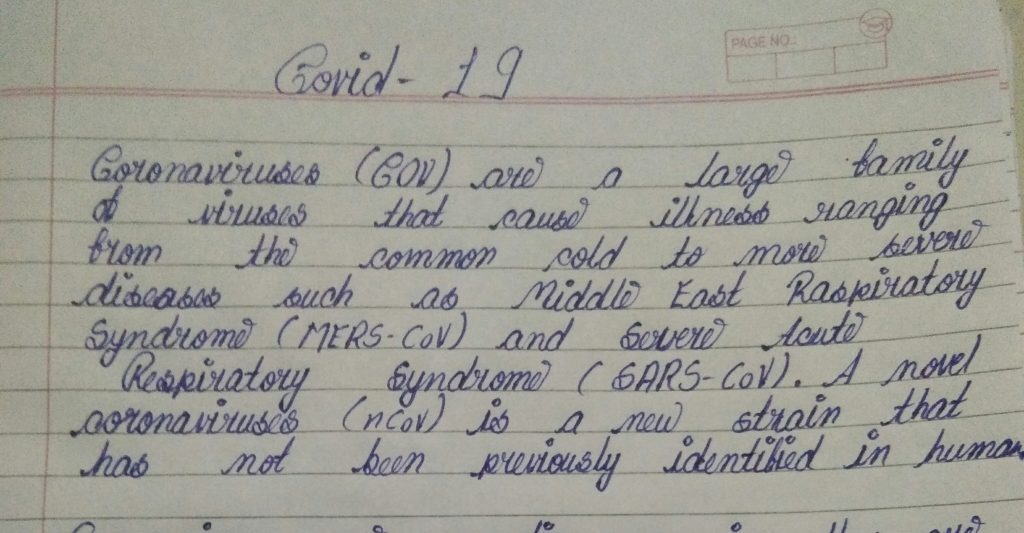 PAGE NO.:
Covid-19
Coronaviruses (COV) are a large family
of viruses that cause illness ranging
from the common cold to more severe
diseases such as Middle East Raspiratory
Syndrome (MERS-CoV) and Severe Acute
Respiratory Syndrome (SARS-CoV). A novel
coronaviruses (nCoV) is a new strain that
has not been previously identified in human